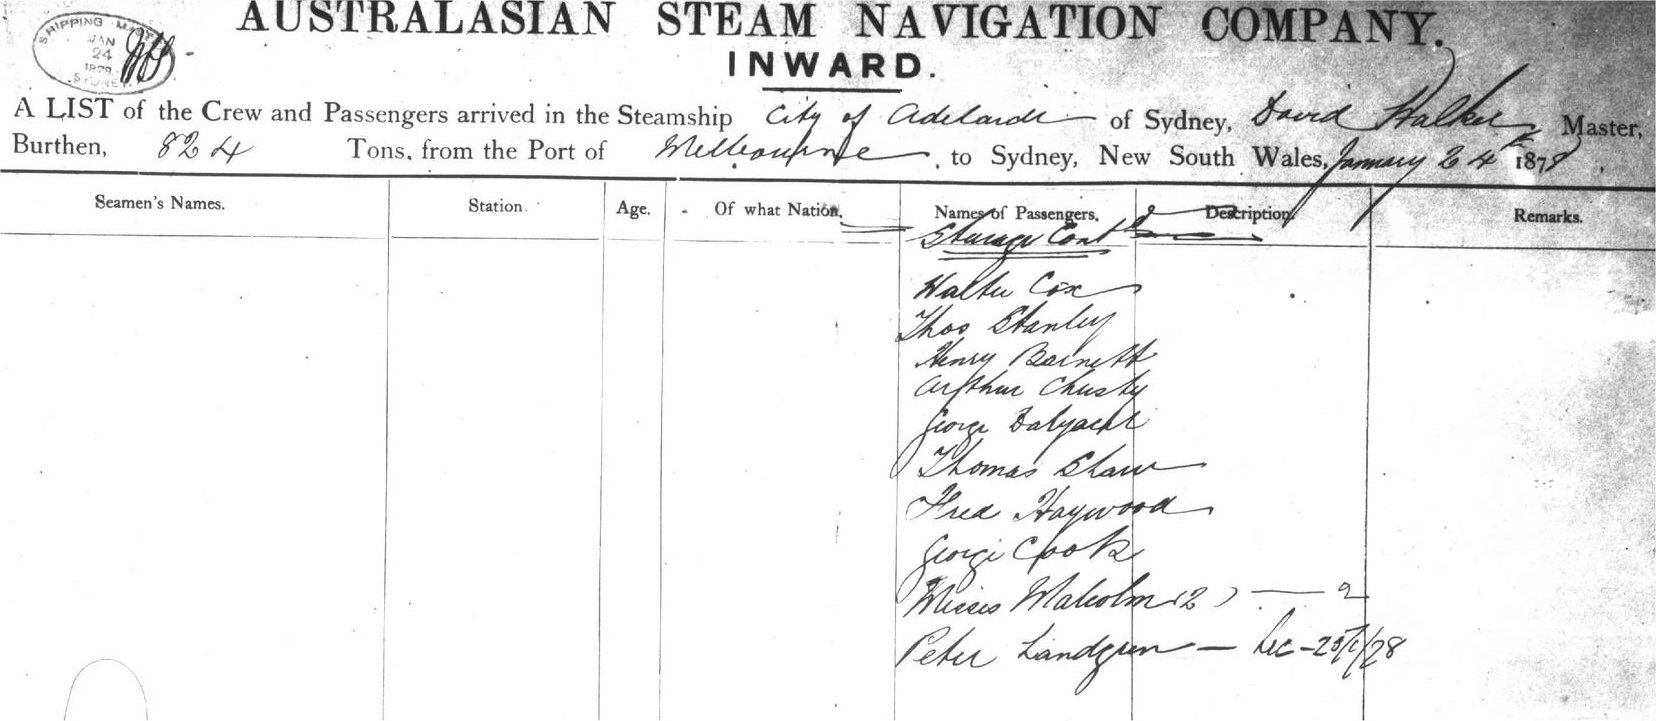 AUSTRALASIAN STEAM NAVIGATION COMPANY.
SHIPPING
JAN
24
SYDNEY
INWARD.
A LIST of the Crew and Passengers arrived in the Steamship City of Adelaide of Sydney, David Walker Master,
Burthen, 824 Tons, from the Port of Melbourne, to Sydney, New South Wales, January 24th 1878
Seamen's Names. Station. Age. Of what Nation. Names of Passengers. Description. Remarks.
Steerage Contd
Walter Cox
Thos Stanley
Henry Barnett
Arthur Christy
George
Thomas Shaw
Fred Haywood
George Cook
Misses Malcolm (2) — 2
Peter Landgren —